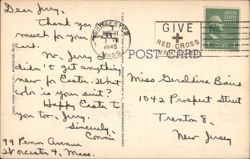 Dear Jery,
Thank you so
much for your
card.
No, Jerry I
didn't get anything
new for Easter. What
color is your suit?
Happy Easter to
you too, Jerry.
Sincerely,
Connie
99 Penn Avenue
Worcester 4, Mass.
WORCESTER
1945
MASS.
GIVE
+
RED CROSS
POST CARD
Miss Geraldine
1042 Prospect Street
Trenton 8,
New Jersey